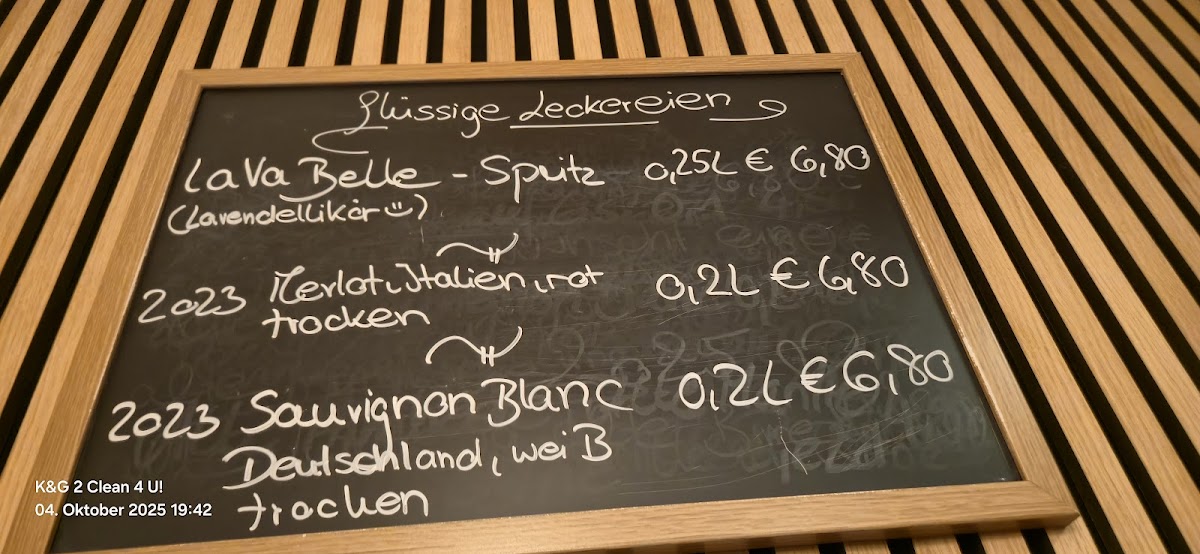 flüssige Leckereien
LaVa Belle - Spritz 0,25L € 6,80
(Lavendellikör☺)
2023 Merlot, Italien, rot 0,2L € 6,80
trocken
2023 Sauvignon Blanc 0,2L € 6,80
Deutschland, weiß
trocken
K&G 2 Clean 4 U!
04. Oktober 2025 19:42